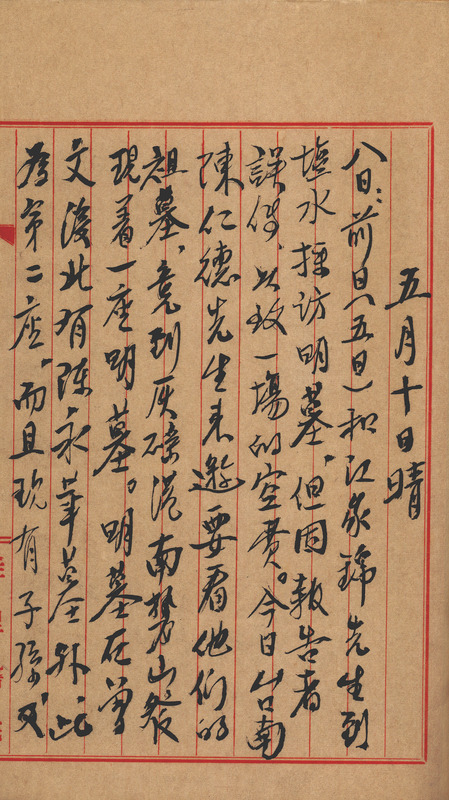 五月十日晴
八日:前日(五日)和江家錦先生到
塩水採訪明墓,但因報告者
誤傳、以致一場的空費。今日台南
陳仁德先生来邀要看他们的
祖墓,竟到灰磘港南勢山發
現着一座明墓。明墓在曾
文溪北有陳永華墓外,此
為第二座。而且現有子孫,又